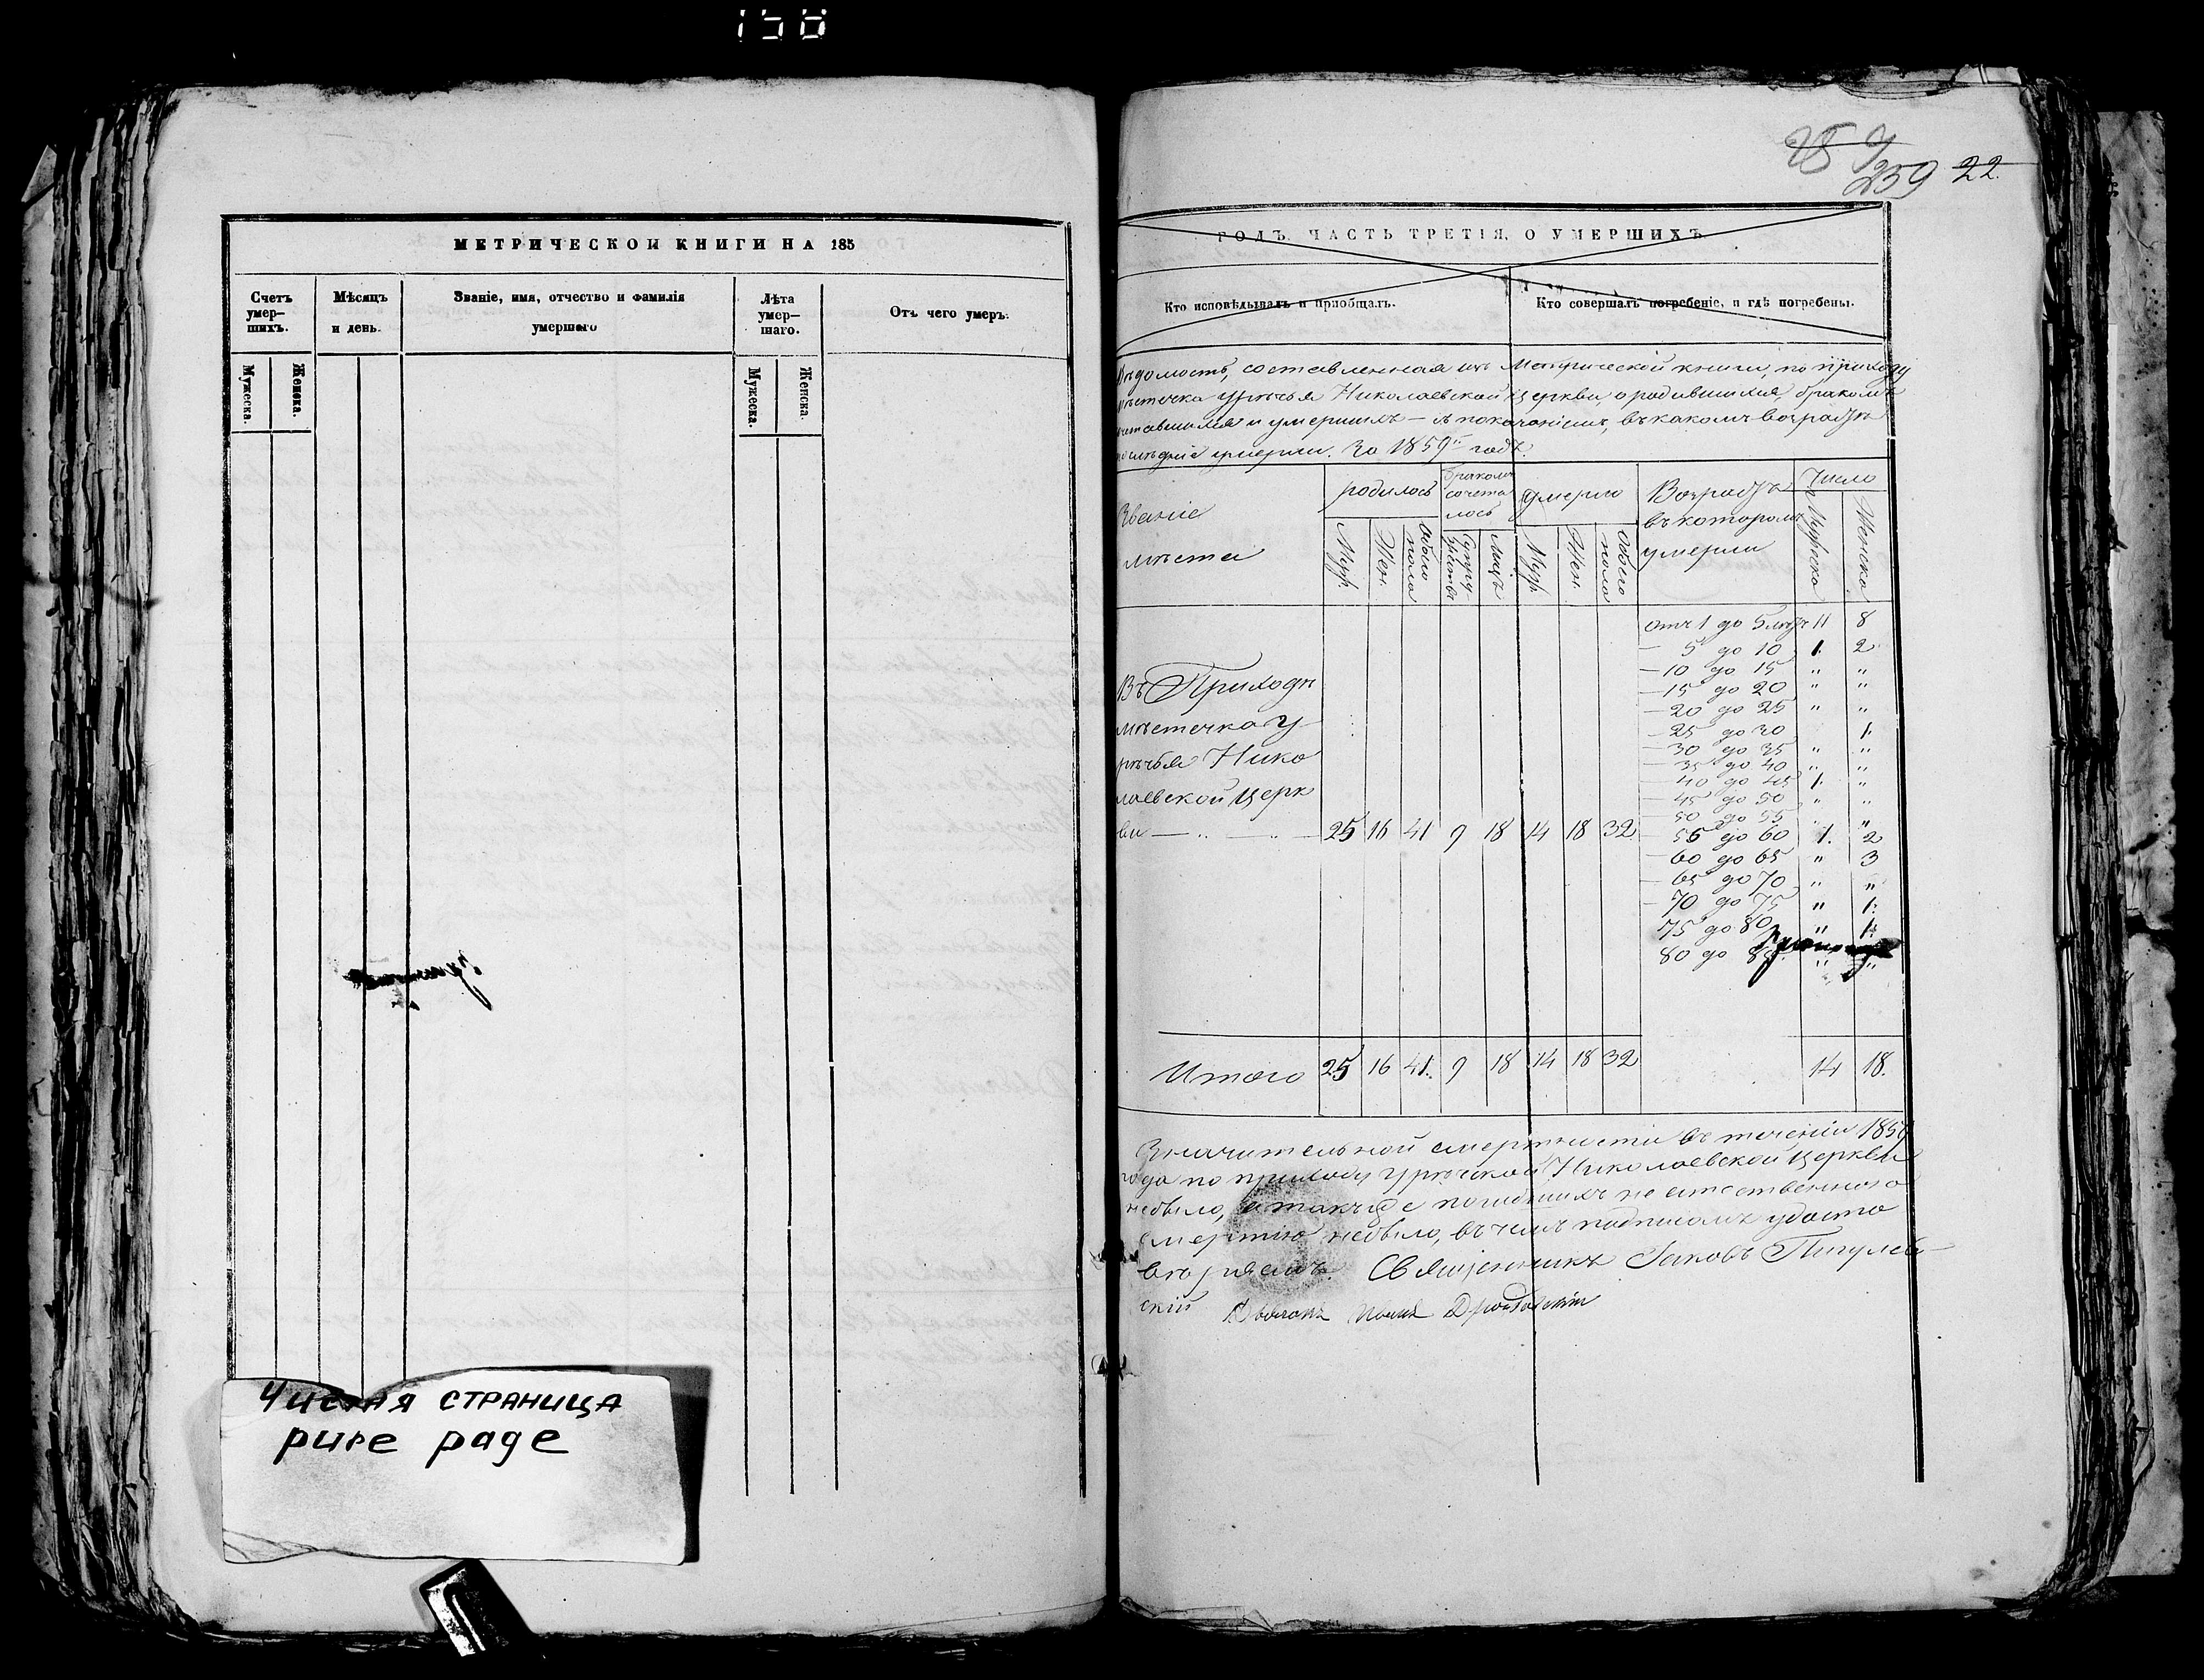 150
МЕТРИЧЕСКОИ КНИГИ НА 185
Счетъ умер–шихъ.
Мѣсяцъ и день.
Званіе, имя, отчество и фамилія умершаго
Лѣта умер–шаго.
Отъ чего умеръ.
Мужеска.
Женска.
Мужеска.
Женска.
Чистая страница
pure page
259 22.
ГОДЪ. ЧАСТЬ ТРЕТІЯ, О УМЕРШИХЪ
Кто исповѣдывалъ и пріобщалъ.
Кто совершалъ погребеніе, и гдѣ погребены.
Вѣдомость, составленная изъ Метрической книги, по приходу
мѣстечка Урѣчья Николаевской Церкви, о родившихся, бракомъ
сочетавшихся и умершихъ – съ показаніемъ, въ какомъ возрастѣ
послѣдніе умерли. За 1859й годъ.
Званіе мѣста
родилось
бракомъ сочета лось
умерло
Возрастъ въ которомъ умерли
Число
Муж.
Жен.
Обоего пола
Супру-жествъ
Лицъ
Муж.
Жен.
Обоего пола
Мужска
Женска
отъ 1 до 5 лѣтъ 11 8
— 5 до 10 1. 2
— 10 до 15 " "
— 15 до 20 " "
— 20 до 25 " "
— 25 до 30 1.
— 30 до 35 " "
— 35 до 40 " "
— 40 до 45 1. "
— 45 до 50 " "
— 50 до 55 " "
55 до 60 1. 2
— 60 до 65 " 3
— 65 до 70 " "
— 70 до 75 " 1.
75 до 80 " 1.
80 до 85. " "
Въ Приходѣ
мѣстечка У-
рѣчья Нико
лаевской Церк
ви — " — " — 25 16 41 9 18 14 18 32
Итого 25 16 41. 9 18 14 18 32 14 18.
Значительной смертности въ теченіи 1859
года по приходу Урѣчской Николаевской Церкви
небыло, а такъже погибшихъ не естественною
смертію небыло, въ чемъ подписомъ удосто
вѣряемъ. Священникъ Іаковъ Пигулев-
скій